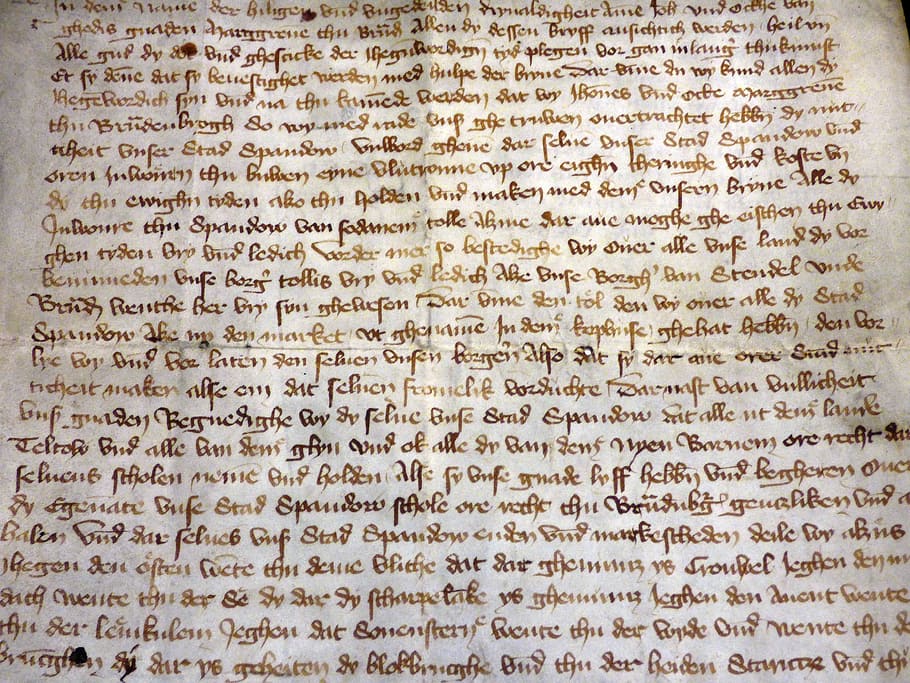 In dem Name der hiligen vnd vngedeilden dryualdigheit Ame Joh vnd Ocke van
ghodis gnaden Marggreue thu Brand Allen dy dessen bryff ansichtich werden heil vn
Alle gud dy vnd ghescicke der Jhegnwordign tyd plegen vor gan in lang thukumst
Et sy dene dat sy beuestighet werden med hulpe der bryue Dar vme du wy kund allen dy
Jhegewordich syn vnd na thu kamede werden dat wy Jhones vnd Ocke Marggreue
thu Brandenbrogh So wy med rade vnß ghe truwen ouertrachtet hebbn dy nut
ticheit vnser Stad Spandow vulbord gheue dar selue vnser Stad Spandow vnd
oren Inwonren thu buwen eyne vlutronne vp ore eighn theringhe vnd koste vn
dy thu ewighn tyden also thu holden vnd maken med dem vnsern bryue Alle dy
Inwonre thu Spandow van sodanem tolle Alzme dar aue meghe ghe eischen thu Ewi
ghen tyden vry vnd ledich vorder mer so bestedighe wy ouer alle vnse land dy vor
benumeden vnse borg tollis vry vnd ledich Alze vnse Borgh van Stendel vnde
Brand wenthe her vry syn ghewesen Dar vme den tol den wy ouer alle dy Stad
Spandow Alze vp den market vt ghename In dem kophuse ghehat hebbn den vor
lye wy vnd vor laten den seluen vnsen borgern Also dat sy dar aue orer Stad nut
ticheit maken alse em dat seluen fromelik vorduchte Darnast van vullicheit
vnß gnaden Begnedighe wy dy selue vnse Stad Spandow dat alle ut dem lande
Teltow vnd alle van dem glyn vnd ok alle dy van dem nyen Barnem ore recht dar
seluens scholen neme vnd holden Alse sy vnse gnade lyff hebbn vnd begheren Ouer
dy Egenate vnse Stad Spandow schole ore recht thu Brandnbg gentzliken vnd
halen vnd dar selues vnß Stad Spandow enden vnd markescheden deile wy
Jhegen den osten wete thu deme vliche dat dar ghenumz ys Crouwel Jeghen den
dach wente thu der Se dy dar dy scharpelake ys ghenumz Jeghen den Auent wente
thu der lenkulem Jeghen dat Souenstern wente thu der wyde vnd wente thu de
brugghen dy dar ys geheiten dy blokbrugghe vnd thu der heiden Stantze vnd thu